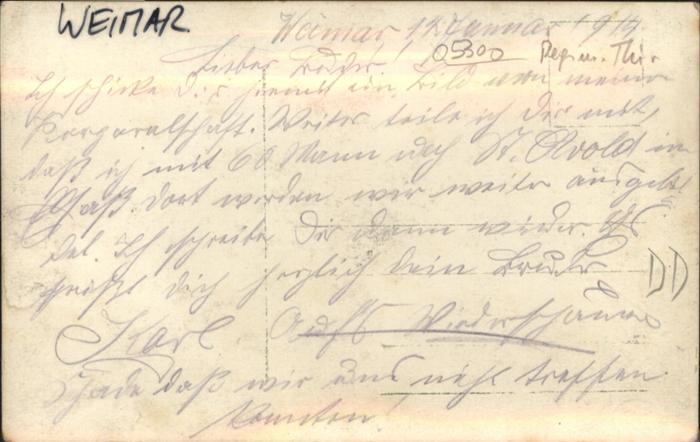 WEIMAR
Weimar 12 Januar 1917
05300
Lieber Bruder!
Ich schicke Dir hiermit ein Bild von meiner
Korporalschaft. Weiter teile ich Dir mit,
daß ich mit 60 Mann nach St. Avold in
Elsaß. Dort werden wir weiter ausgebil
det. Ich schreibe Dir dann wieder. Es
grüßt Dich herzlich dein Bruder
Karl Aufs Wiederschauen
Schade daß wir uns nicht treffen
konnten!
DD